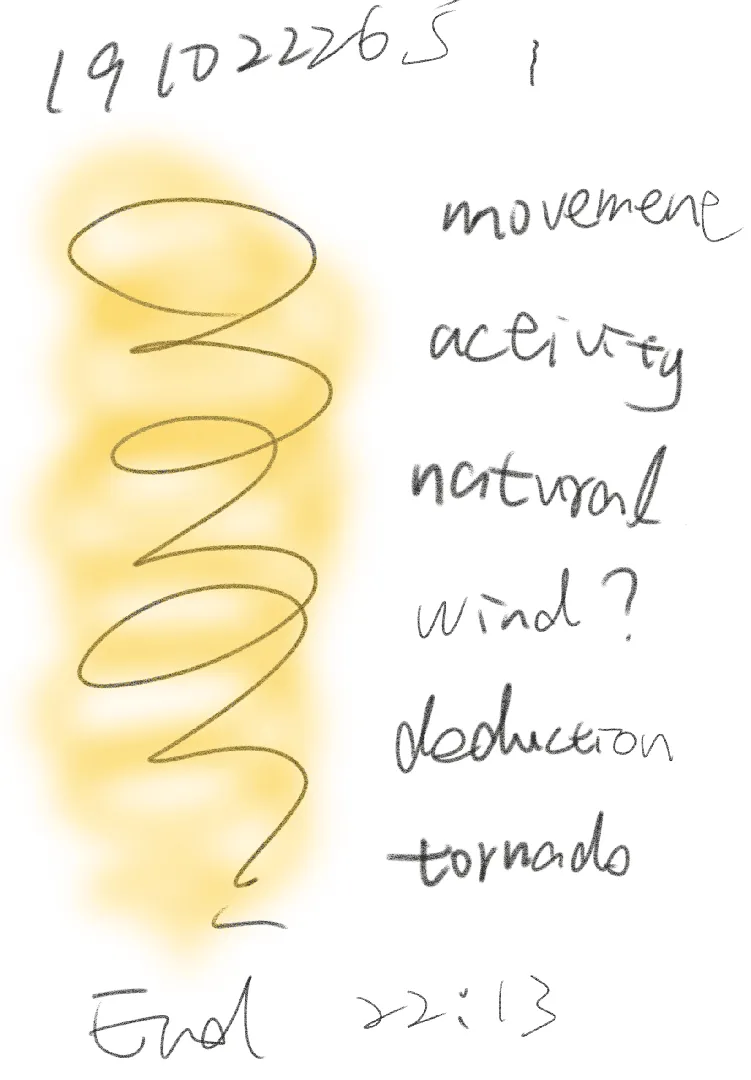 191022265 1
movement
activity
natural
wind?
deduction
tornado
End 22:13